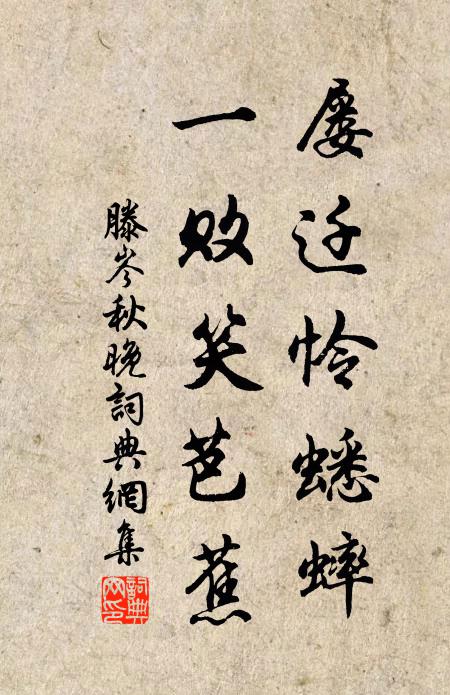 屡迁怜蟋蟀
一败笑芭蕉
滕岑秋晚詞典網集